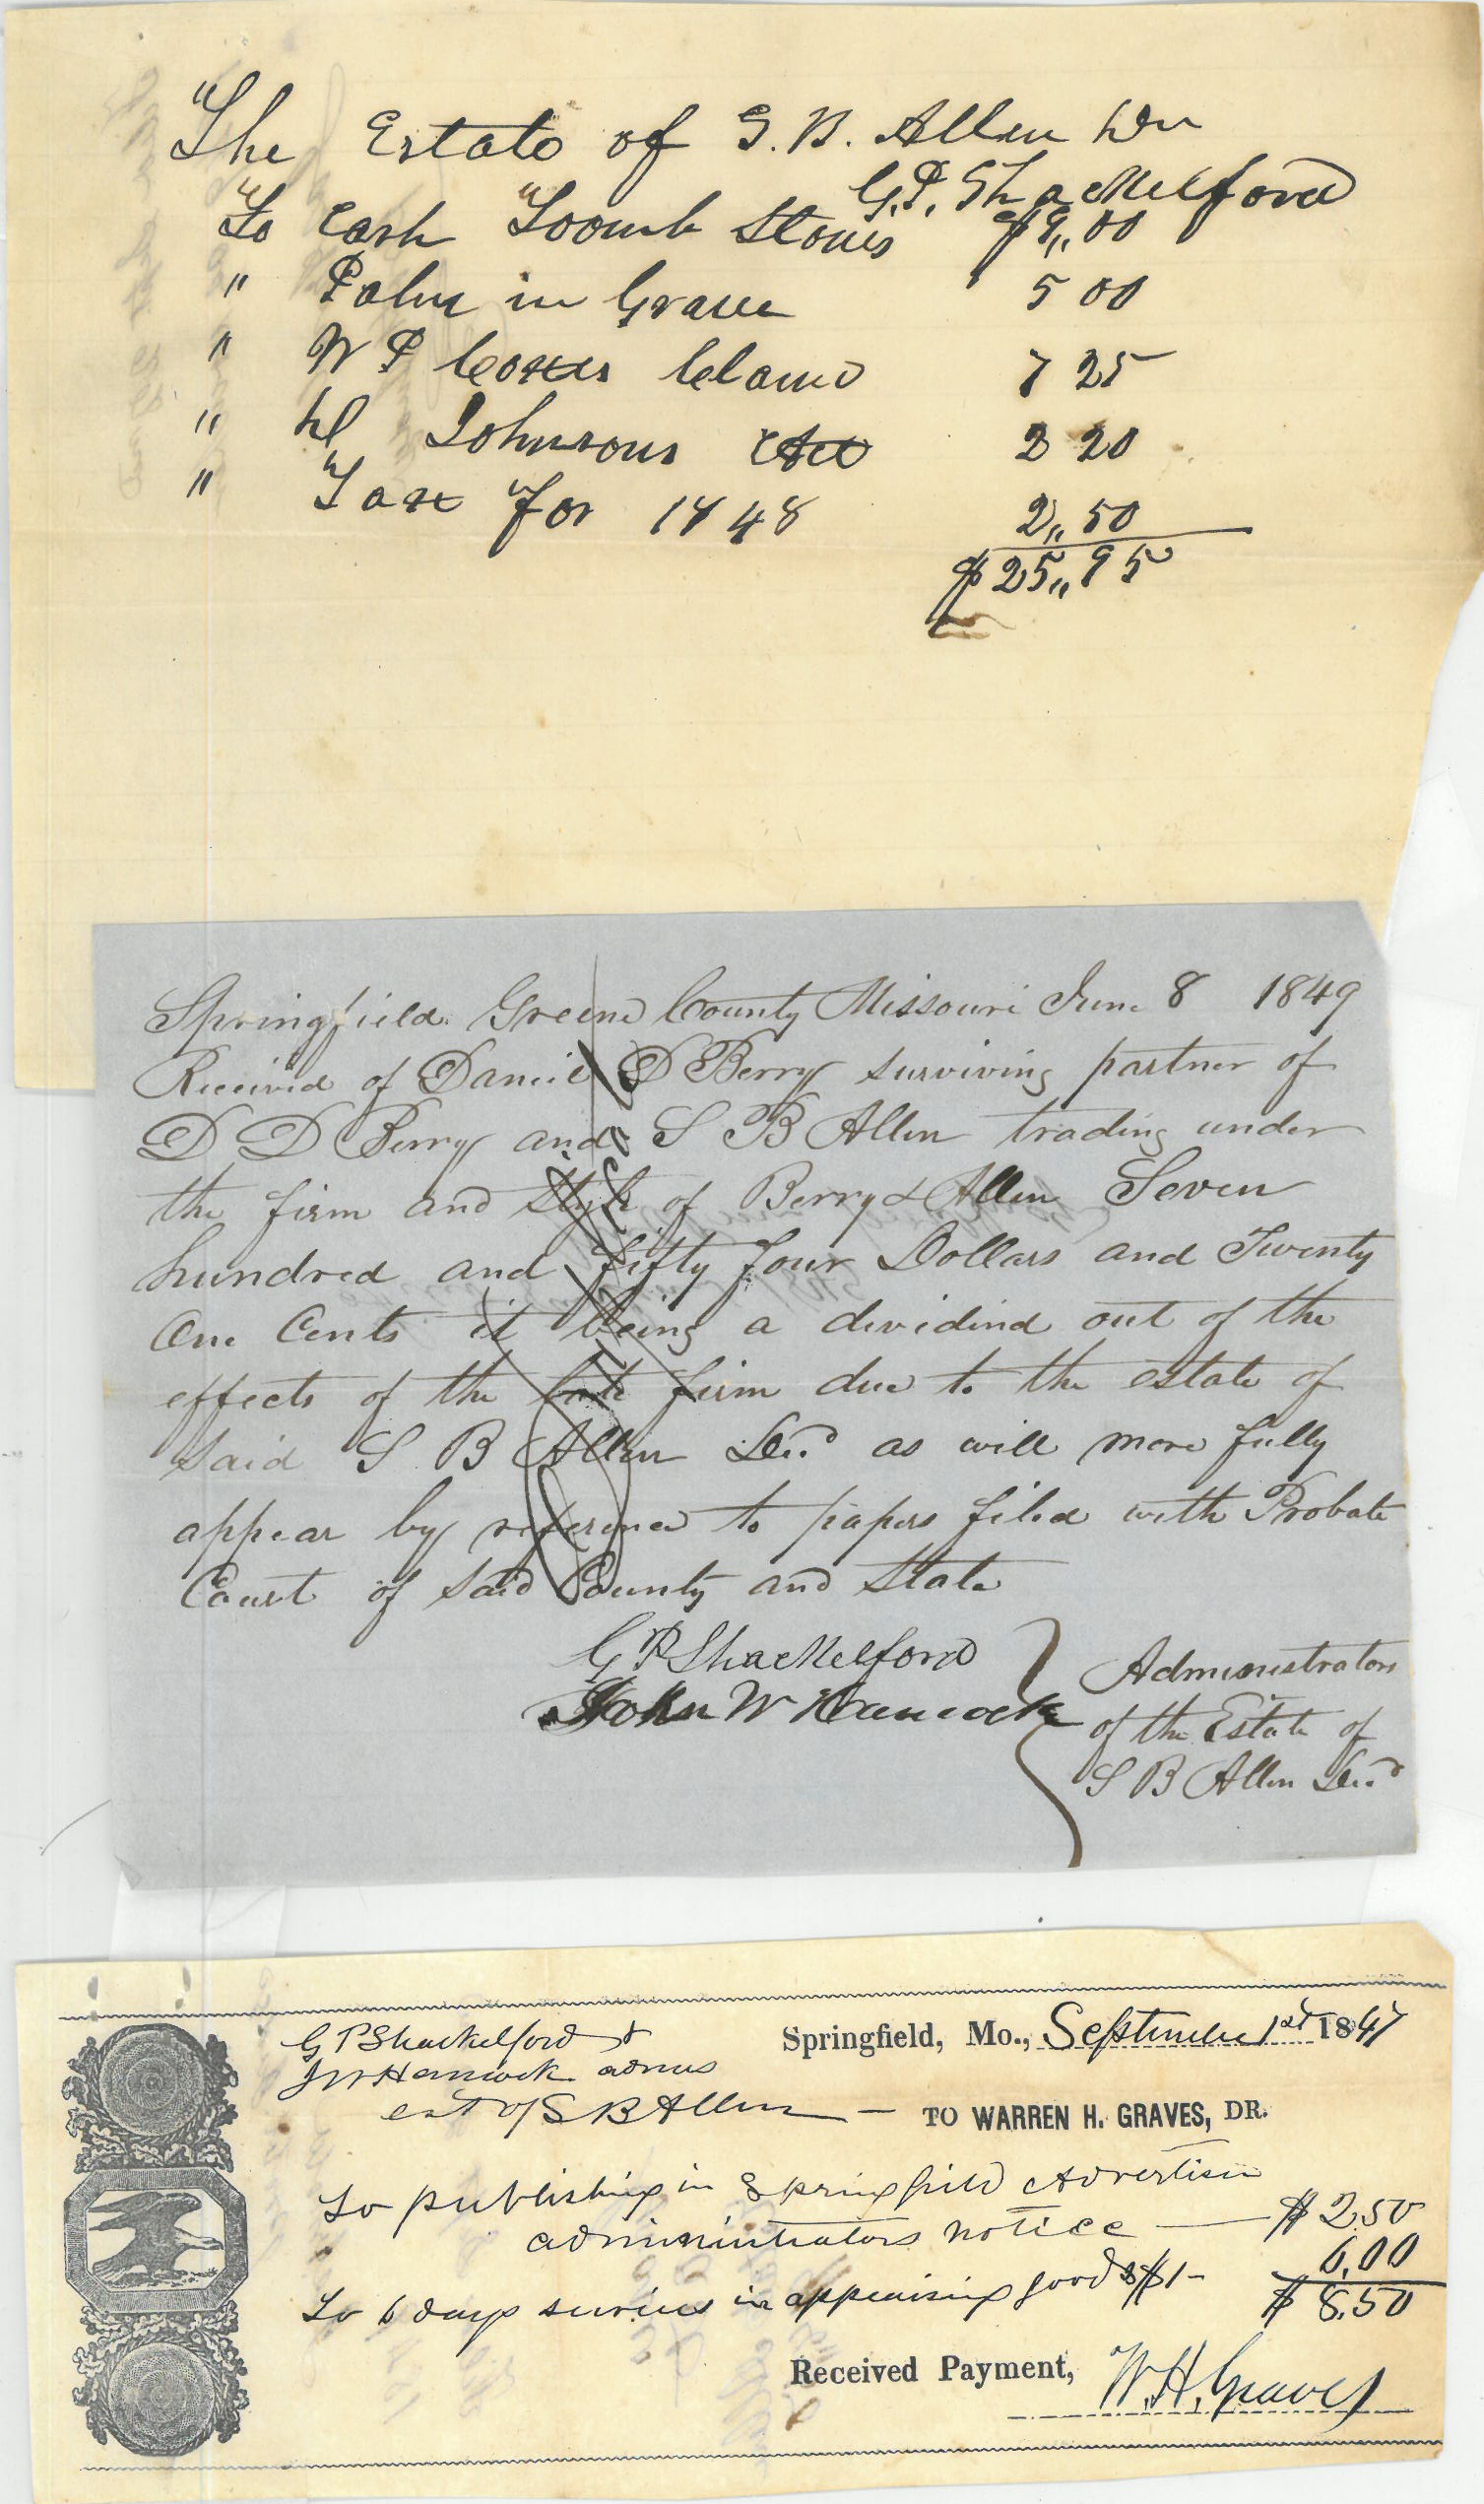 The Estate of S. B. Allen Dr
G. P. Shackelford
To Cash Toomb Stones $9,,00
" Palm in Grave 5 00
" W P Coxes Claim 7 25
" Johnsons Act 2 20
" Tax for 1848 2,,50
$25,,95
Springfield Greene County Missouri June 8 1849
Received of Daniel D Berry surviving partner of
D D Berry and S B Allen trading under
the firm and style of Berry & Allen Seven
hundred and fifty four Dollars and Twenty
One Cents it being a dividind out of the
effects of the late firm due to the estate of
said S B Allen Decd as will more fully
appear by reference to papers filed with Probate
Court of said County and State
G P Shackelford
John W Hancock
Administrators
of the Estate of
S B Allen Decd
G P Shackelford &
J W Hancock admrs
est of S B Allen —
Springfield, Mo., September 1st 1847
TO WARREN H. GRAVES, DR.
To publishing in Springfield Advertiser
administrators notice — $2.50
To 6 days services in appraising goods $1- 6.00
$8.50
Received Payment, W. H. Graves